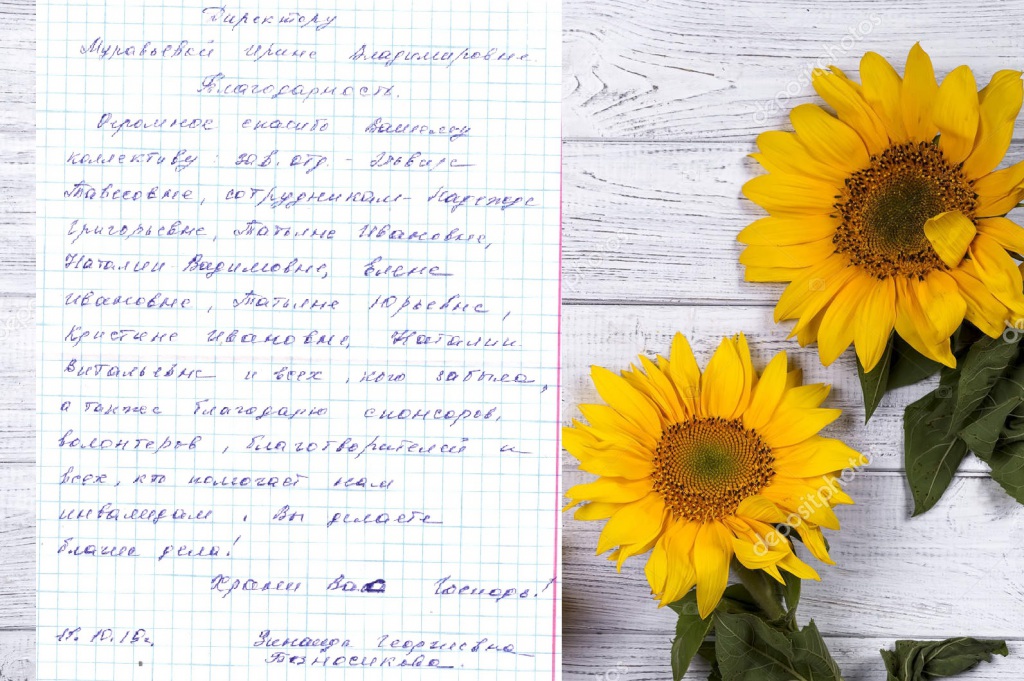 Директору
Муравьевой Ирине Владимировне.
Благодарность.
Огромное спасибо Вашему
коллективу: зав. отд. - Эльвире
Тависовне, сотрудникам - Надежде
Григорьевне, Татьяне Ивановне,
Наталии Вадимовне, Елене
Ивановне, Татьяне Юрьевне,
Кристине Ивановне, Наталии
Витальевне и всех, кого забыла,
а также благодарю спонсоров,
волонтеров, благотворителей и
всех, кто помогает нам
инвалидам. Вы делаете
благие дела!
Храни Вас Господь!
10.18г. Зинаида Георгиевна
Безносикова.
depositphotos
depositphotos
depositphotos